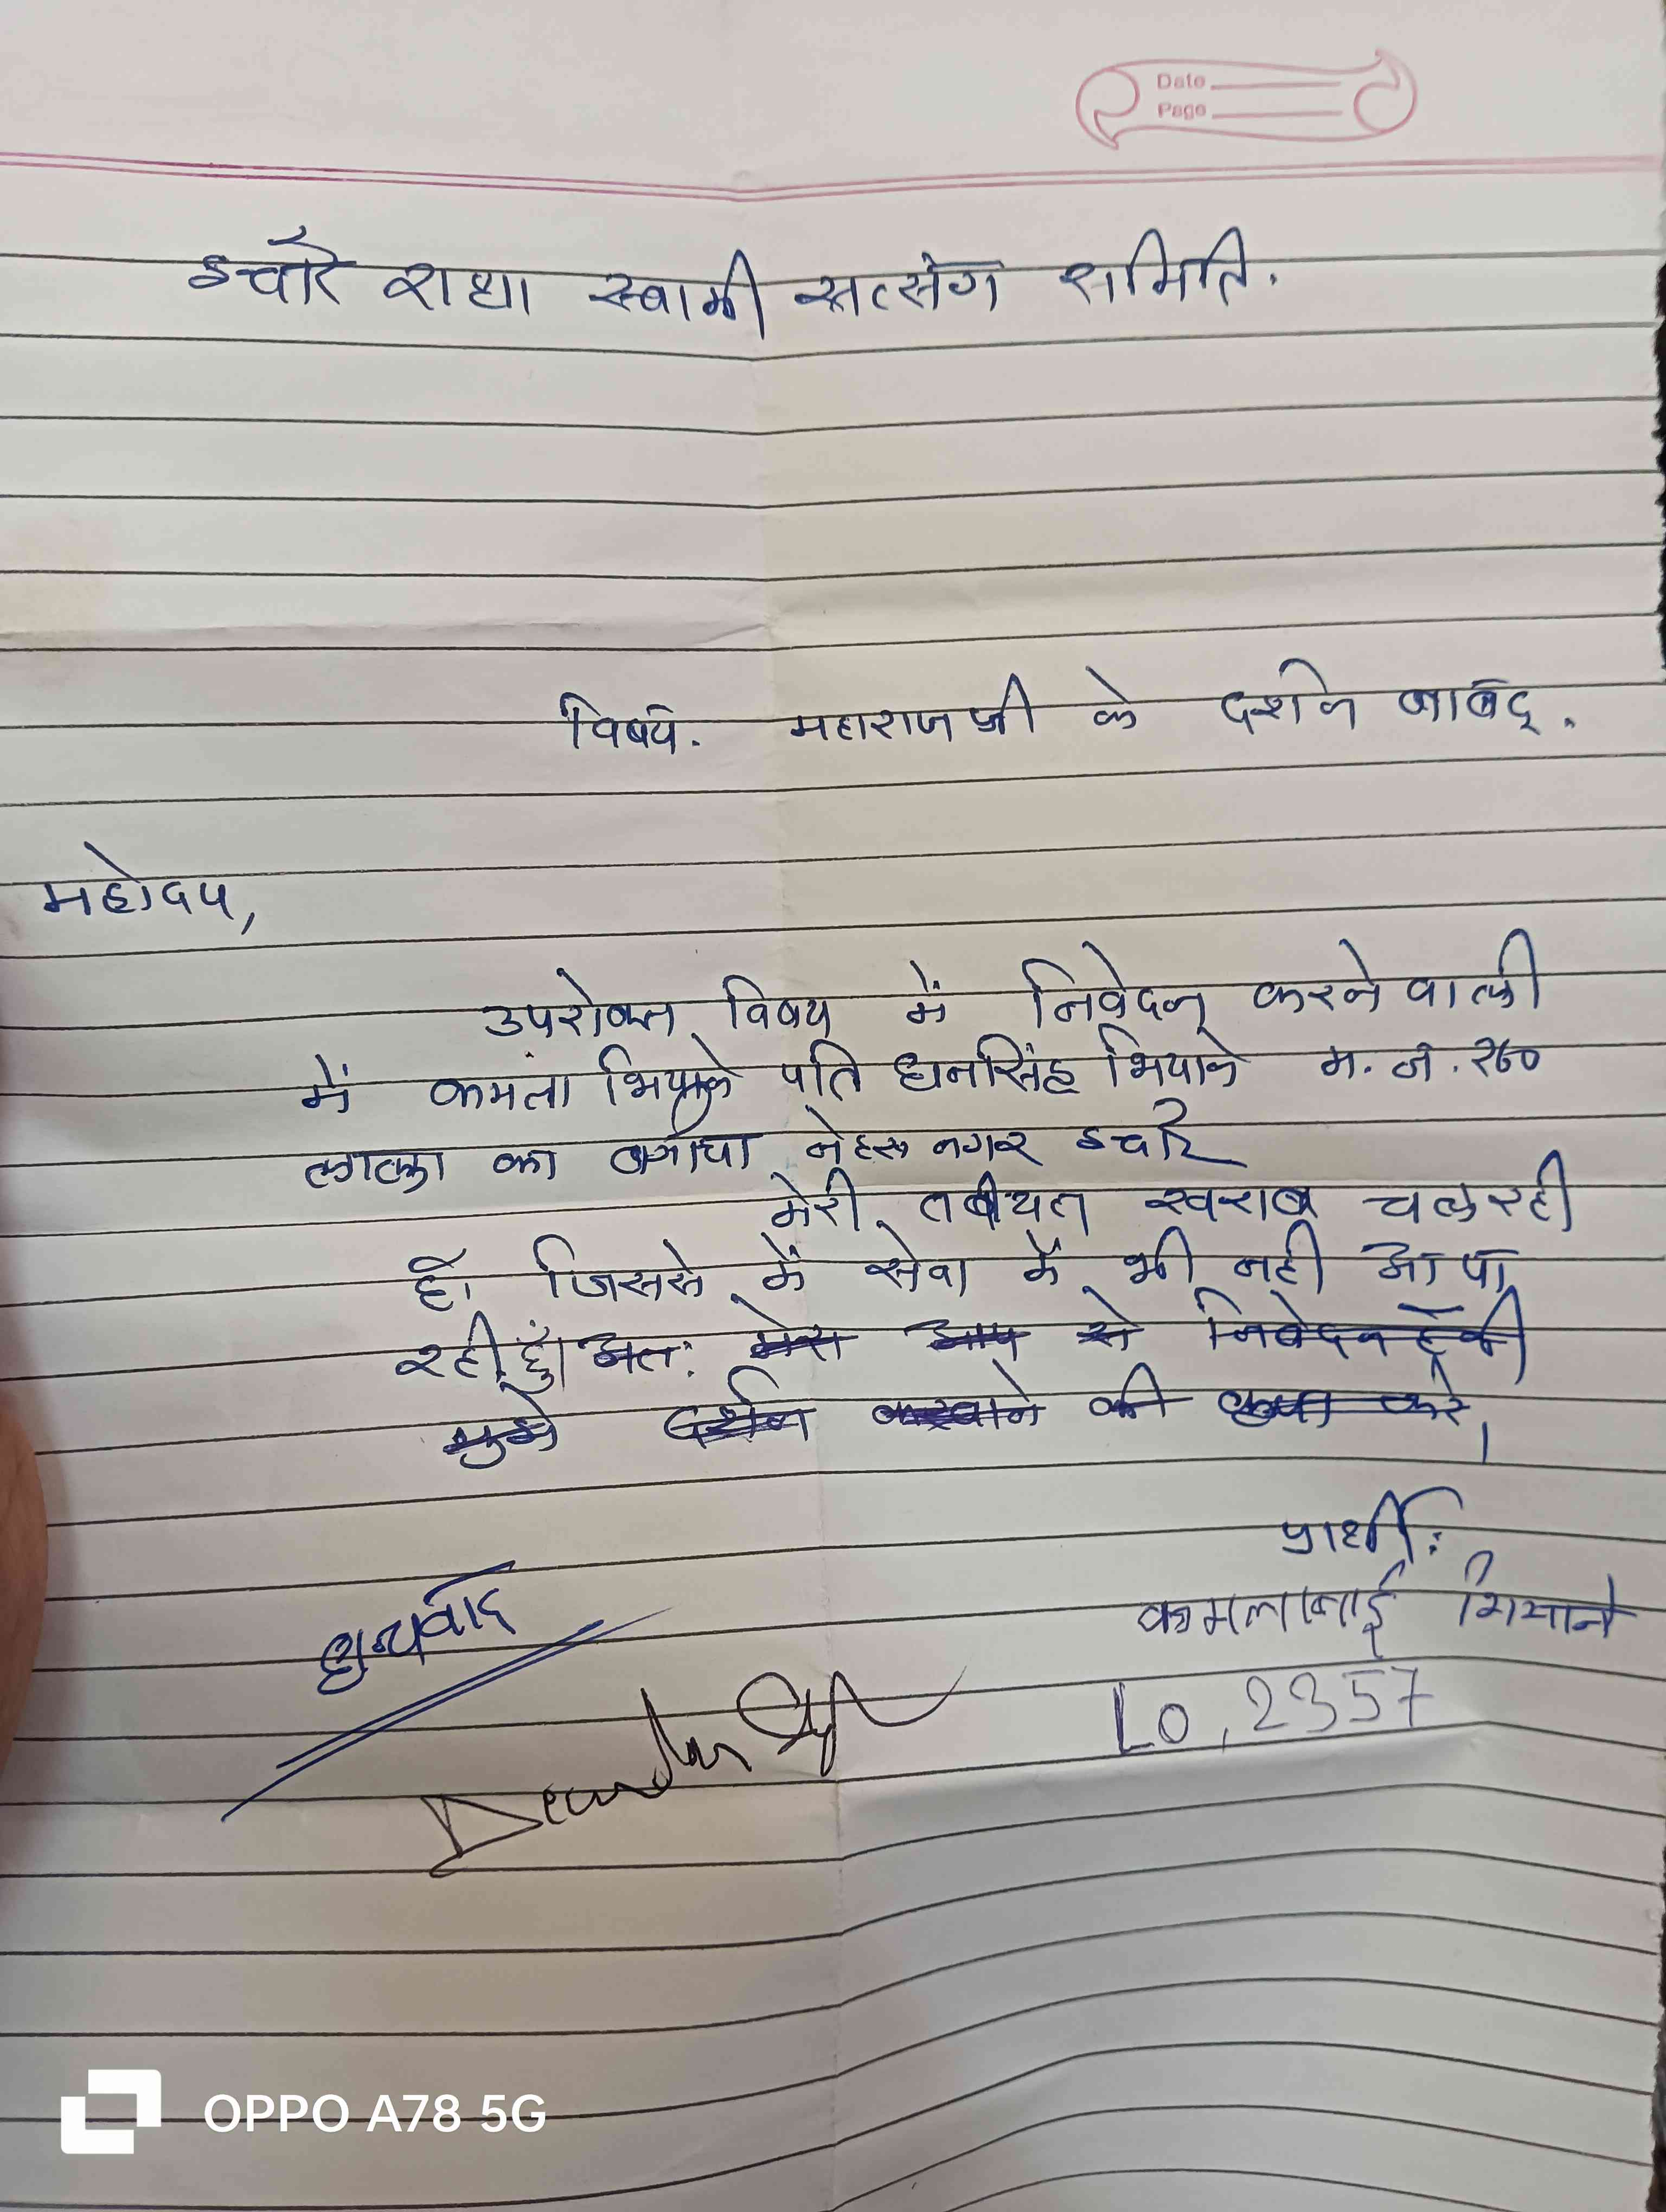 Date
Page
इन्दौर राधा स्वामी सत्संग समिति.
विषय. महाराज जी के दर्शन बाबद.
महोदय,
उपरोक्त विषय में निवेदन करने वाली
में कमला भियाने पति धनसिंह भियाने म. नं. २७०
लाला का बगीचा नेहरू नगर इन्दौर
मेरी तबीयत खराब चल रही
है। जिससे में सेवा में भी नही आ पा
रही हुं। अतः मेरा आप से निवेदन है की
मुझे दर्शन करवाने की कृपा करे।
प्रार्थी:
धन्यवाद
कमलाबाई भियाने
LO, 2357
OPPO A78 5G